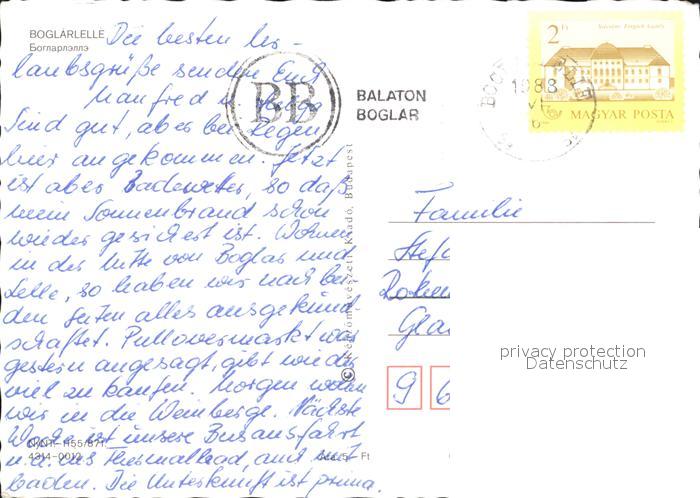 BOGLÁRLELLE
Богларлэллэ
Die besten Ur-
laubsgrüße senden Euch
Manfred u.
Sind gut, aber bei Regen
hier angekommen. Jetzt
ist aber Badewetter, so daß
mein Sonnenbrand schon
wieder gesichert ist. Wohnen
in der Mitte von Boglar und
Lelle, so haben wir nach bei-
den Seiten alles ausgekund-
schaftet. Pullovermarkt war
gestern angesagt, gibt wieder
viel zu kaufen. Morgen wollen
wir in die Weinberge. Nächste
Woche ist unsere Busausfahrt
u.a. ins Thermalbad, auch mit
baden. Die Unterkunft ist prima.
4314-0012
Ft
Képzőművészeti Kiadó, Budapest
BB
BALATON
BOGLÁR
1988
VII
6
2 Ft
MAGYAR POSTA
Familie
Stef
Gla
9 6
privacy protection
Datenschutz